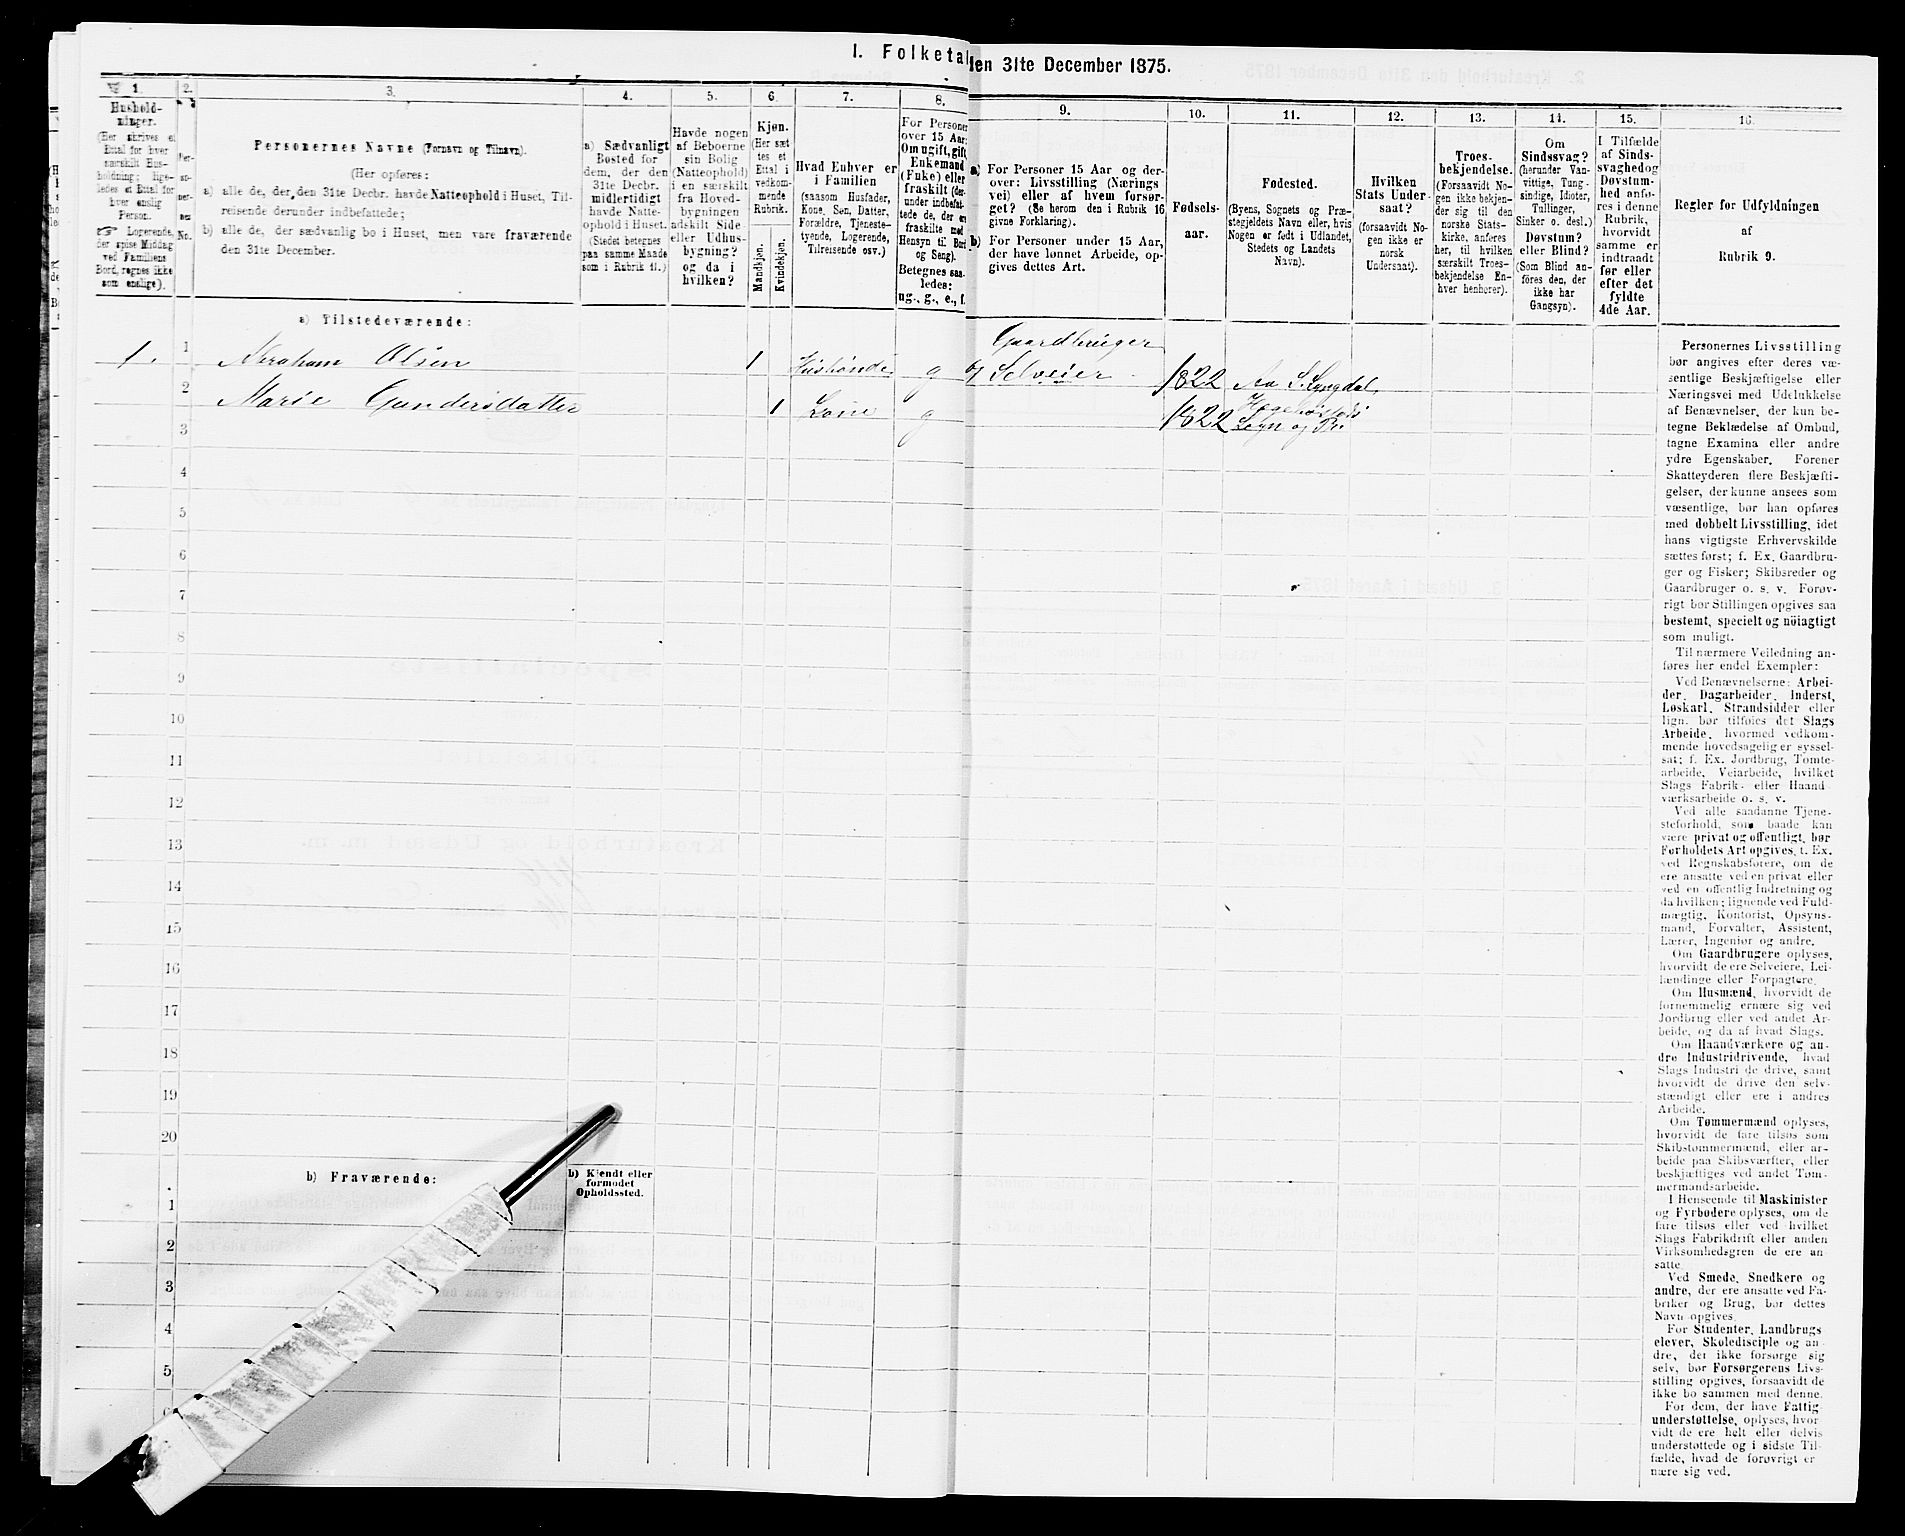 I. Folketal
den 31te December 1875.
1.
Hushold-
ninger.
(Her skrives et
Ettal for hver
særskilt Hus-
holdning; lige-
ledes et Ettal for
hver enslig
Person.
☞ Logerende,
der spise Middag
ved Familiens
Bord, regnes ikke
som enslige).
2.
Per-
so-
ner-
nes
No.
3.
Personernes Navne (Fornavn og Tilnavn).
(Her opføres:
a) alle de, der den 31te Decbr. havde Natteophold i Huset, Til-
reisende derunder indbefattede;
b) alle de, der sædvanlig bo i Huset, men vare fraværende
den 31te December.
4.
a) Sædvanligt
Bosted for
dem, der den
31te Decbr.
midlertidigt
havde Natte-
ophold i Huset.
(Stedet betegnes
paa samme Maade
som i Rubrik 11.)
5.
Havde nogen
af Beboerne
sin Bolig
(Natteophold)
i en særskilt
fra Hoved-
bygningen
adskilt Side-
eller Udhus-
bygning?
og da i
hvilken?
6.
Kjøn.
(Her sæt
tes et
Ettal i
vedkom-
mende
Rubrik.
Mandkjøn.
Kvindekjøn.
7.
Hvad Enhver er
i Familien
(saasom Husfader,
Kone, Søn, Datter,
Forældre, Tjeneste-
tyende, Logerende,
Tilreisende osv.)
8.
For Personer
over 15 Aar:
Om ugift, gift,
Enkemand
(Enke) eller
fraskilt (der-
under indbefat-
tede de, der ere
fraskilte med
Hensyn til Bord
og Seng).
Betegnes saa-
ledes:
ug., g., e., f.
9.
a) For Personer 15 Aar og der-
over: Livsstilling (Nærings
vei) eller af hvem forsør-
get? (Se herom den i Rubrik 16
givne Forklaring).
b) For Personer under 15 Aar,
der have lønnet Arbeide, op-
gives dettes Art.
10.
Fødsels-
aar.
11.
Fødested.
(Byens, Sognets og Præ-
stegjeldets Navn eller, hvis
Nogen er født i Udlandet,
Stedets og Landets
Navn).
12.
Hvilken
Stats Under-
saat?
(forsaavidt No-
gen ikke er
norsk
Undersaat).
13.
Troes-
bekjendelse.
(Forsaavidt No-
gen ikke bekjen-
der sig til den
norske Stats-
kirke, anføres
her, til hvilken
særskilt Troes-
bekjendelse En-
hver henhører).
14.
Om
Sindssvag?
(herunder Van-
vittige, Tung-
sindige, Idioter,
Tullinger,
Sinker o. desl.)
Døvstum?
eller Blind?
(Som Blind an-
føres den, der
ikke har
Gangsyn).
15.
I Tilfælde
af Sinds-
svaghed og
Døvstum-
hed anfø-
res i denne
Rubrik,
hvorvidt
samme er
indtraadt
før eller
efter det
fyldte
4de Aar.
16.
Regler for Udfyldningen
af
Rubrik 9.
a) Tilstedeværende:
1. 1 Abraham Olsen 1 Husbonde g Gaardbruger
og Selveier 1822 Aa S. Lyngdal
2 Marie Gundersdatter 1 Kone g 1822
Sogn og Pr.
3
4
5
6
7
8
9
10
11
12
13
14
15
16
17
18
19
20
b) Fraværende:
b) Kjendt eller
formodet
Opholdssted.
1
2
3
4
5
6
Personernes Livsstilling
bør angives efter deres væ-
sentlige Beskjæftigelse eller
Næringsvei med Udelukkelse
af Benævnelser, der kun be-
tegne Beklædelse af Ombud,
tagne Examina eller andre
ydre Egenskaber. Forener
Skatteyderen flere Beskjæfti-
gelser, der kunne ansees som
væsentlige, bør han opføres
med dobbelt Livsstilling, idet
hans vigtigste Erhvervskilde
sættes først; f. Ex. Gaardbru-
ger og Fisker; Skibsreder og
Gaardbruger o. s. v. Forøv-
rigt bør Stillingen opgives saa
bestemt, specielt og nöiagtigt
som muligt.
Til nærmere Veiledning an-
føres her endel Exempler:
Ved Benævnelserne: Arbei-
der, Dagarbeider, Inderst,
Løskarl, Strandsidder eller
lign. bør tilføies det Slags
Arbeide, hvormed vedkom-
mende hovedsagelig er syssel-
sat; f. Ex. Jordbrug, Tomte-
arbeide, Veiarbeide, hvilket
Slags Fabrik- eller Haand-
værksarbeide o. s. v.
Ved alle saadanne Tjene-
steforhold, som baade kan
være privat og offentligt, bør
Forholdets Art opgives, f. Ex.
ved Regnskabsførere, om de
ere ansatte ved en privat eller
ved en offentlig Indretning og
da hvilken; lignende ved Fuld-
mægtig, Kontorist, Opsyns-
mand, Forvalter, Assistent,
Lærer, Ingeniør og andre.
Om Gaardbrugere oplyses,
hvorvidt de ere Selveiere, Lei-
lændinge eller Forpagtere.
Om Husmænd, hvorvidt de
fornemmelig ernære sig ved
Jordbrug eller ved andet Ar-
beide, og da af hvad Slags.
Om Haandværkere og an-
dre Industridrivende, hvad
Slags Industri de drive, samt
hvorvidt de drive den selv-
stændigt eller ere i andres
Arbeide.
Om Tømmermænd oplyses,
hvorvidt de fare tilsøs som
Skibstømmermænd, eller ar-
beide paa Skibsværfter, eller
beskjæftiges ved andet Tøm-
mermandsarbeide.
I Henseende til Maskinister
og Fyrbødere oplyses, om de
fare tilsøs eller ved hvilket
Slags Fabrikdrift eller anden
Virksomhedsgren de ere an-
satte.
Ved Smede, Snedkere og
andre, der ere ansatte ved Fa-
briker og Brug, bør dettes
Navn opgives.
For Studenter, Landbrugs
elever, Skoledisciple og an-
dre, der ikke forsørge sig
selv, bør Forsørgerens Livs-
stilling opgives, forsaavidt de
ikke bo sammen med denne.
For dem, der have Fattig-
understøttelse, oplyses, hvor-
vidt de ere helt eller delvis
understøttede og i sidste Til-
fælde, hvad de forøvrigt er-
nære sig ved.